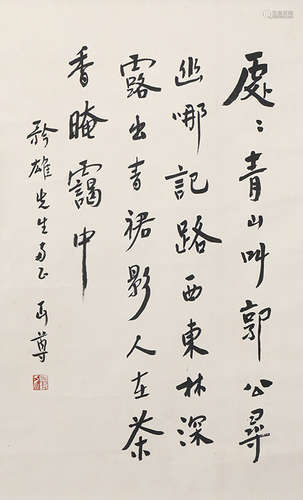 處處青山叫郭公尋
幽哪記路西東林深
露出青裙影人在茶
香晻靄中
矜雄先生正 丏尊